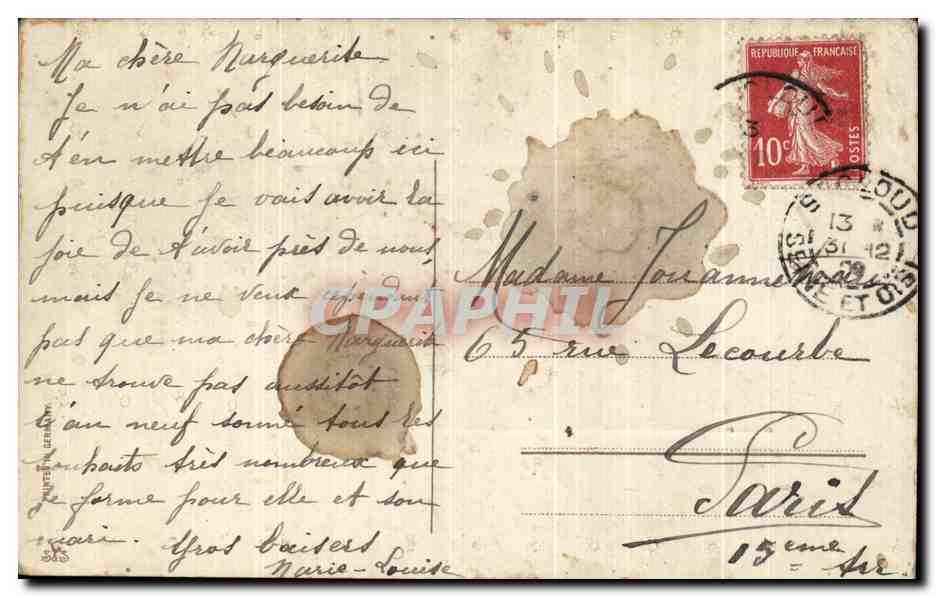 Ma chère Marguerite
Je n'ai pas besoin de
t'en mettre beaucoup ici
puisque je vais avoir la
joie de t'avoir près de nous
mais je ne veux cependant
pas que ma chère Marguerite
ne trouve pas aussitôt
l'an neuf sonné tous les
souhaits très nombreux que
je forme pour elle et son
mari. Gros baisers
Marie-Louise
PRINTED IN GERMANY
REPUBLIQUE FRANÇAISE
10c
POSTES
CLOUD
13
31 12
SEINE ET OISE
Madame Jouanne
65 rue Lecourbe
Paris
15eme Arr
CPAPHIL